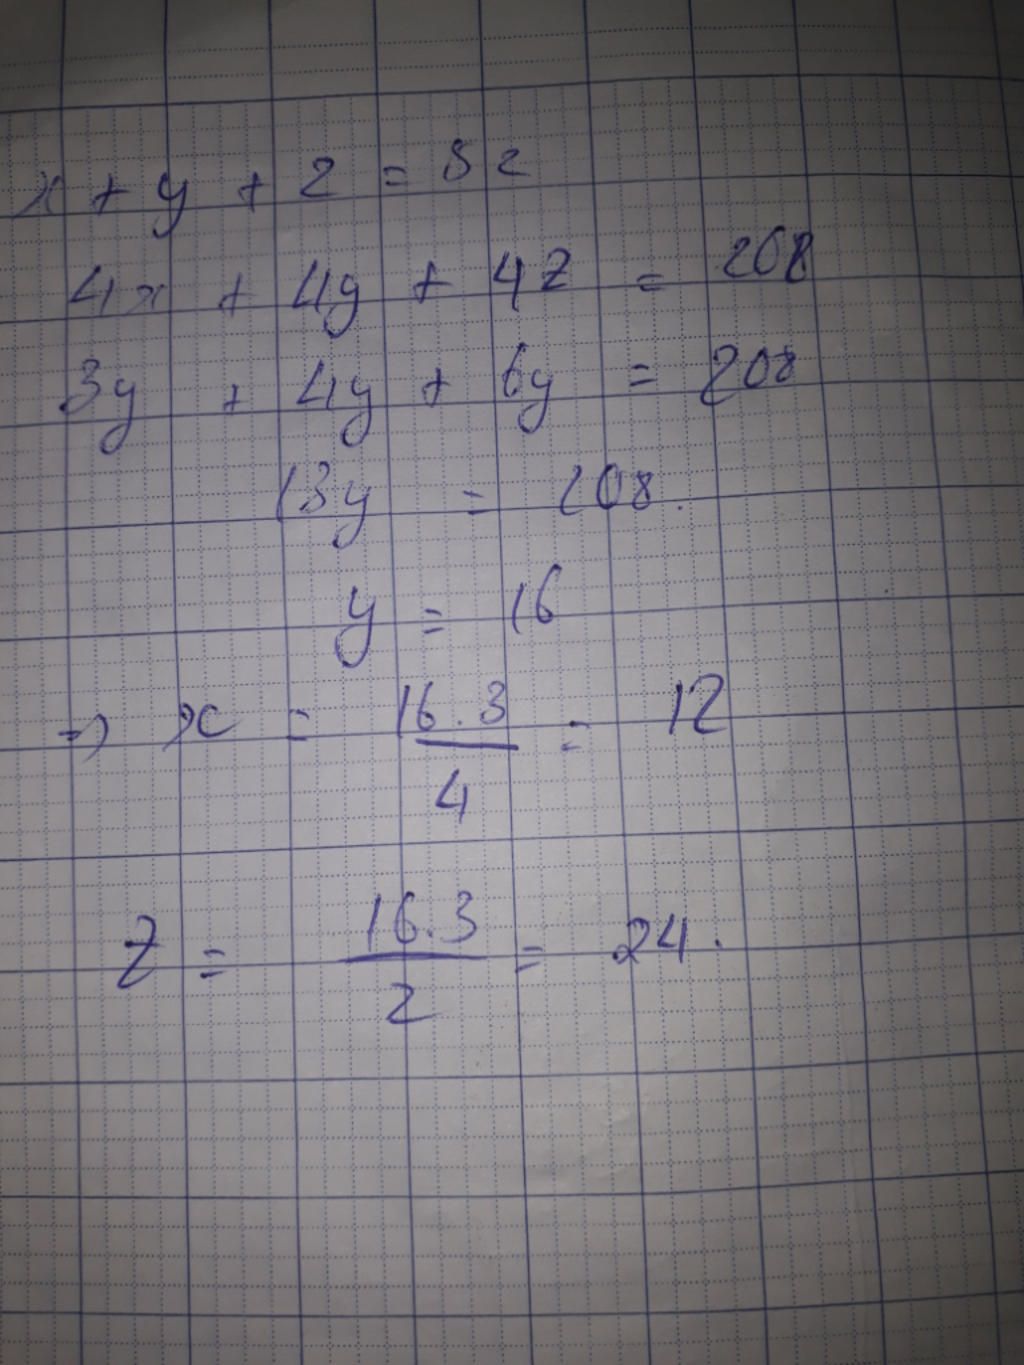 x + y + z = 52
4x + 4y + 4z = 208
3y + 4y + 6y = 208
13y = 208.
y = 16
=> x = 16.3/4 = 12
z = 16.3/2 = 24.